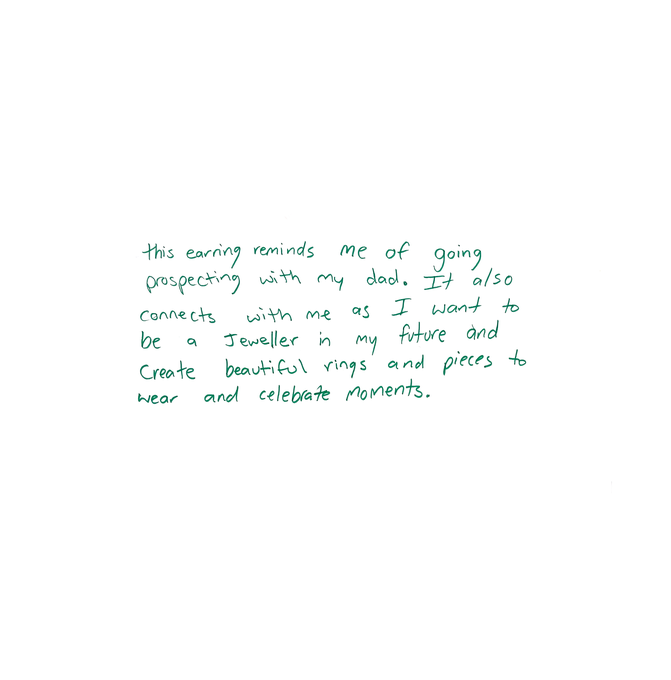 this earring reminds me of going
prospecting with my dad. It also
connects with me as I want to
be a Jeweller in my future and
Create beautiful rings and pieces to
wear and celebrate moments.